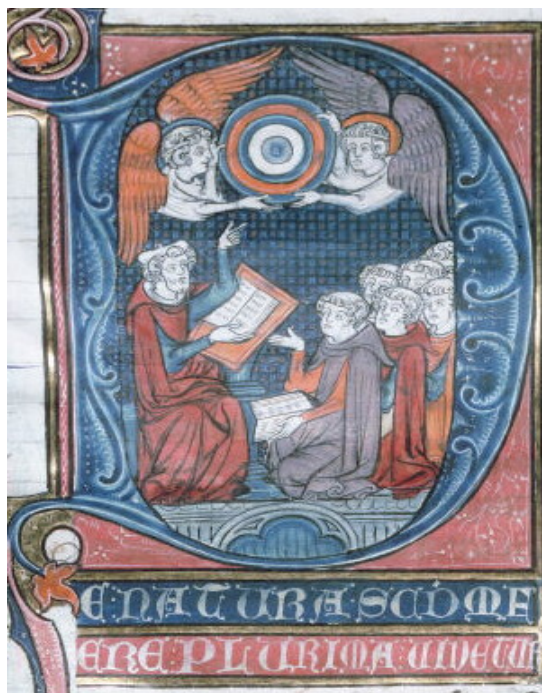 DE NATURA
ERE PLURIMA UIDETUR